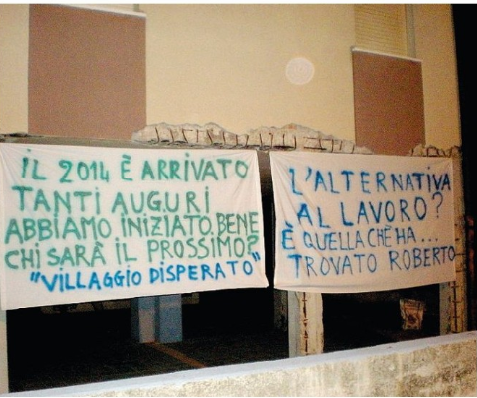 IL 2014 È ARRIVATO
TANTI AUGURI
ABBIAMO INIZIATO BENE
CHI SARÀ IL PROSSIMO?
"VILLAGGIO DISPERATO"
L'ALTERNATIVA
AL LAVORO?
È QUELLA CHE HA...
TROVATO ROBERTO